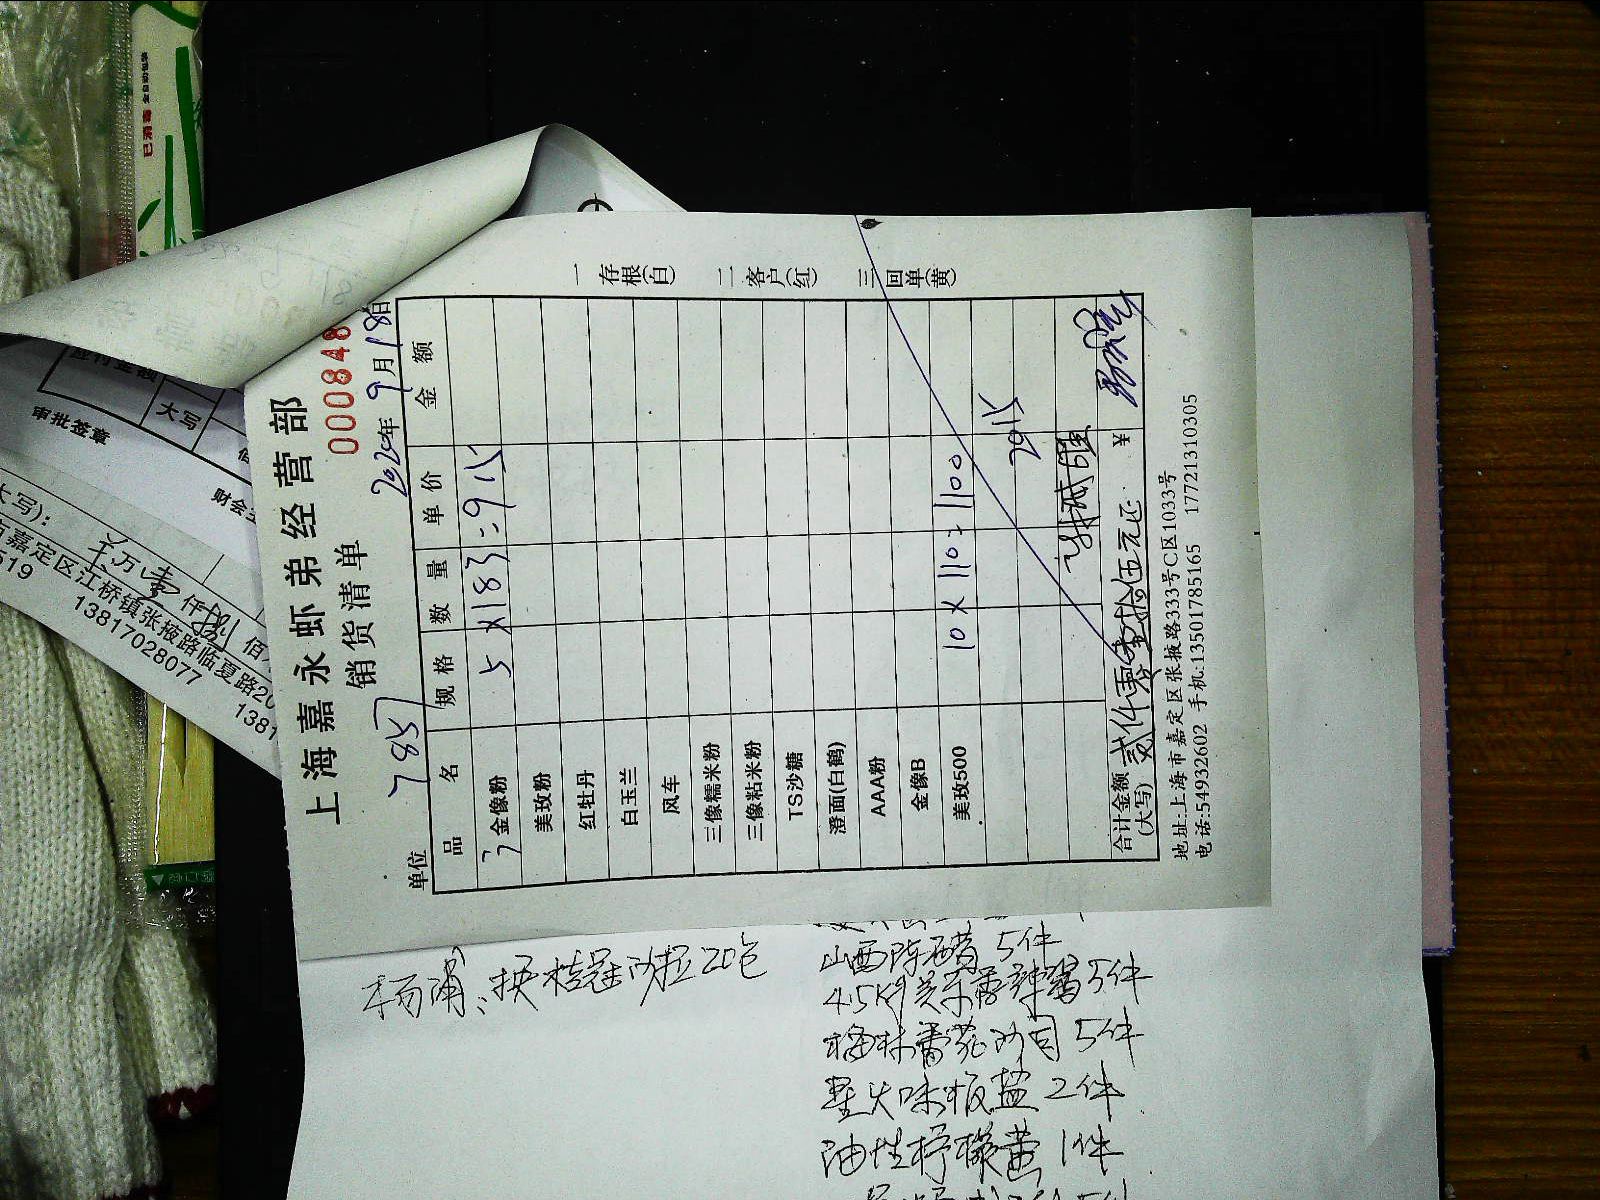 上海嘉永虾弟经营部
销货清单
0000848
单位 7857 2020年9月18日
品名 规格 数量 单价 金额
金像粉 5×183=915
美玫粉
红牡丹
白玉兰
风车
三像糯米粉
三像粘米粉
TS沙糖
澄面(白鹤)
AAA粉
金像B
美玫500 10×110=1100
2015
合计金额(大写) 贰仟零壹拾伍元正 ¥
地址:上海市嘉定区张掖路333号C区1033号
电话:54932602 手机:13501785165 17721310305
一存根(白) 二客户(红) 三回单(黄)
杨浦:换桂冠沙拉20包
山西陈醋 5件
4.5Kg 5件
梅林番茄沙司 5件
2件
油性柠檬黄 1件
大写
审批签章
财会
大写):
万 仟 佰
嘉定区江桥镇张掖路临夏路20
519
13817028077
1381
已消毒